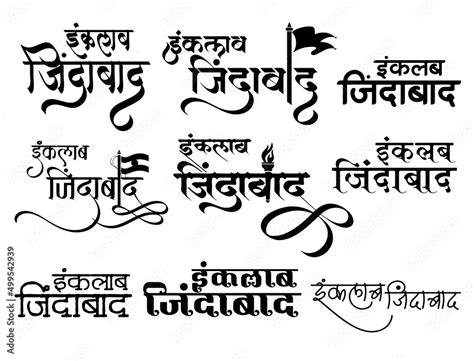 इंकलाब
जिंदाबाद
इंकलाव
जिंदाबाद
इंकलब
जिंदाबाद
इंकलाब
जिंदाबाद
इंकलाब
जिंदाबाद
इंकलब
जिंदाबाद
इंकलाब
जिंदाबाद
इंकलाब
जिंदाबाद
इंकलाब जिंदाबाद
Adobe Stock | #499542939